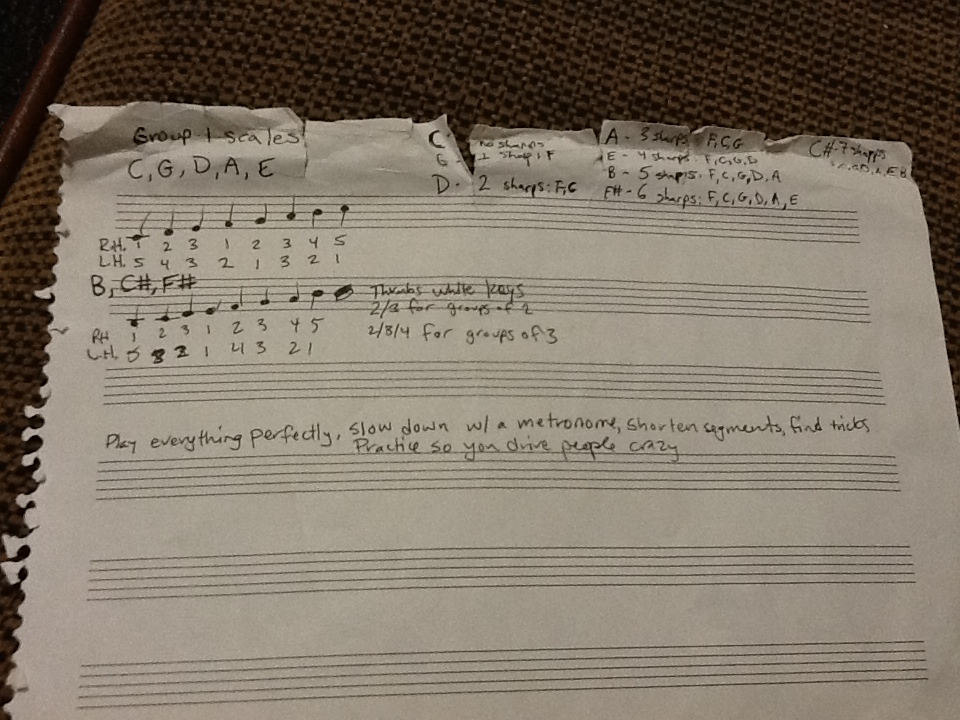 Group 1 scales
C, G, D, A, E
C - no sharps
G - 1 sharp: F
D - 2 sharps: F, C
A - 3 sharps: F, C, G
E - 4 sharps: F, C, G, D
B - 5 sharps: F, C, G, D, A
F# - 6 sharps: F, C, G, D, A, E
C# - 7 sharps
F, C, G, D, A, E, B
R.H. 1 2 3 1 2 3 4 5
L.H. 5 4 3 2 1 3 2 1
B, C#, F#
Thumbs white keys
2/3 for groups of 2
RH 1 2 3 1 2 3 4 5
2/3/4 for groups of 3
L.H. 5 3 2 1 4 3 2 1
Play everything perfectly, slow down w/ a metronome, shorten segments, find tricks
Practice so you drive people crazy